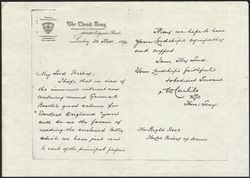 The Church Army,
Edgware Road,
London, 22 Nov. 1890
My Lord Bishop,
I hope that in view of
the immense interest now
centering round General
Booth's great scheme for
Darkest England you
will do us the favour of
reading the enclosed letter
which we have just sent
to each of the principal papers.
Thus we hope to have
Your Lordship's sympathy
and support.
I am My Lord
Your Lordship's faithful
& obedient Servant
W Carlile
Hon. Secy.
The Right Revd
The Lord Bishop of